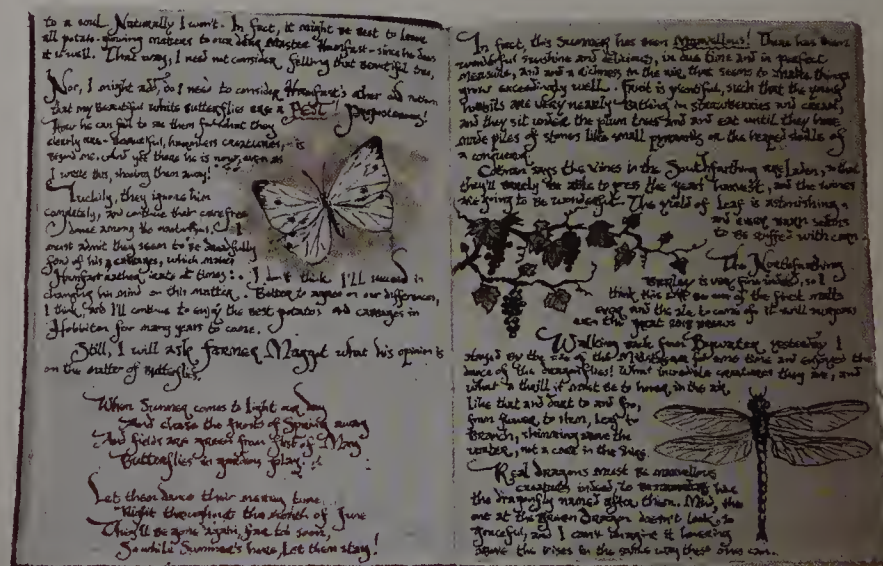 to a soul. Naturally I won't. In fact, it might be best to leave
all potato-growing matters to our dear Master Hamfast - since he does
it so well. That way, I need not consider felling that beautiful tree.
Nor, I might add, do I need to consider Hamfast's other odd notion
that my beautiful white Butterflies are a PEST! Preposterous!
How he can fail to see them for what they
clearly are - beautiful, harmless creatures, - is
beyond me. And yet there he is now, even as
I write this, shooing them away!
Luckily, they ignore him
completely, and continue their carefree
dance among the nasturtiums. I
must admit they seem to be dreadfully
fond of his cabbages, which makes
Hamfast rather irate at times. I don't think I'll succeed in
changing his mind on this matter. Better to agree on our differences,
I think, and I'll continue to enjoy the best potatoes and cabbages in
Hobbiton for many years to come.
Still, I will ask Farmer Maggot what his opinion is
on the matter of Butterflies.
When Summer comes to light our day
And chase the frost of Spring away
And fields are green from first of May
Butterflies in gardens play.
Let them dance their merry time
Right throughout the month of June
They'll be gone again, far too soon,
So while Summer's here, Let them stay!
In fact, this Summer has been Marvellous! There has been
wonderful sunshine and delicious, in due time and in perfect
measure, and and a richness in the air that seems to make things
grow exceedingly well. Fruit is plentiful, such that the young
hobbits are very nearly bathing in strawberries and cream,
and they sit under the plum trees and and eat until they have
made piles of stones like small pyramids or the heaped skulls of
a conqueror.
Cotman says the vines in the Southfarthing are laden, so that
they'll barely be able to press the years harvest, and the wines
are going to be wonderful. The yield of Leaf is astonishing,
and every barn seems
to be stuffed with corn
The Northfarthing
Barley is very fine indeed, so I
think this will be one of the finest malts
ever, and the ale to come of it will surpass
even the great
Walking back from Bywater yesterday I
stayed by the of the Millstream for some time and enjoyed the
dance of the dragonflies! What incredible creatures they are, and
what a thrill it must be to hover in the air
like that and dart to and fro,
from flower to stem, leaf to
branch, skimming above the
water, not a care in the
Real dragons must be marvellous
creatures indeed, to have
the dragonfly named after them. Mind, the
one at the Green Dragon doesn't look so
graceful, and I can't imagine it hovering
above the in the same way these ones can..